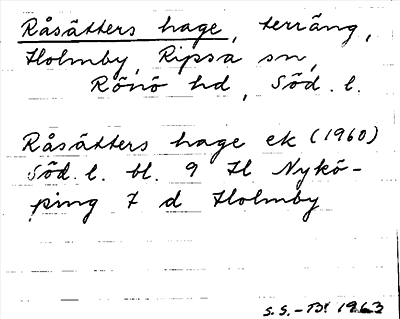 Råsätters hage, terräng,
Holmby, Ripsa sn,
Rönö hd, Söd. l.
Råsätters hage ek (1960)
Söd. l. bl. 9 H Nykö-
ping 7 d Holmby
S.S.-Bl 1963